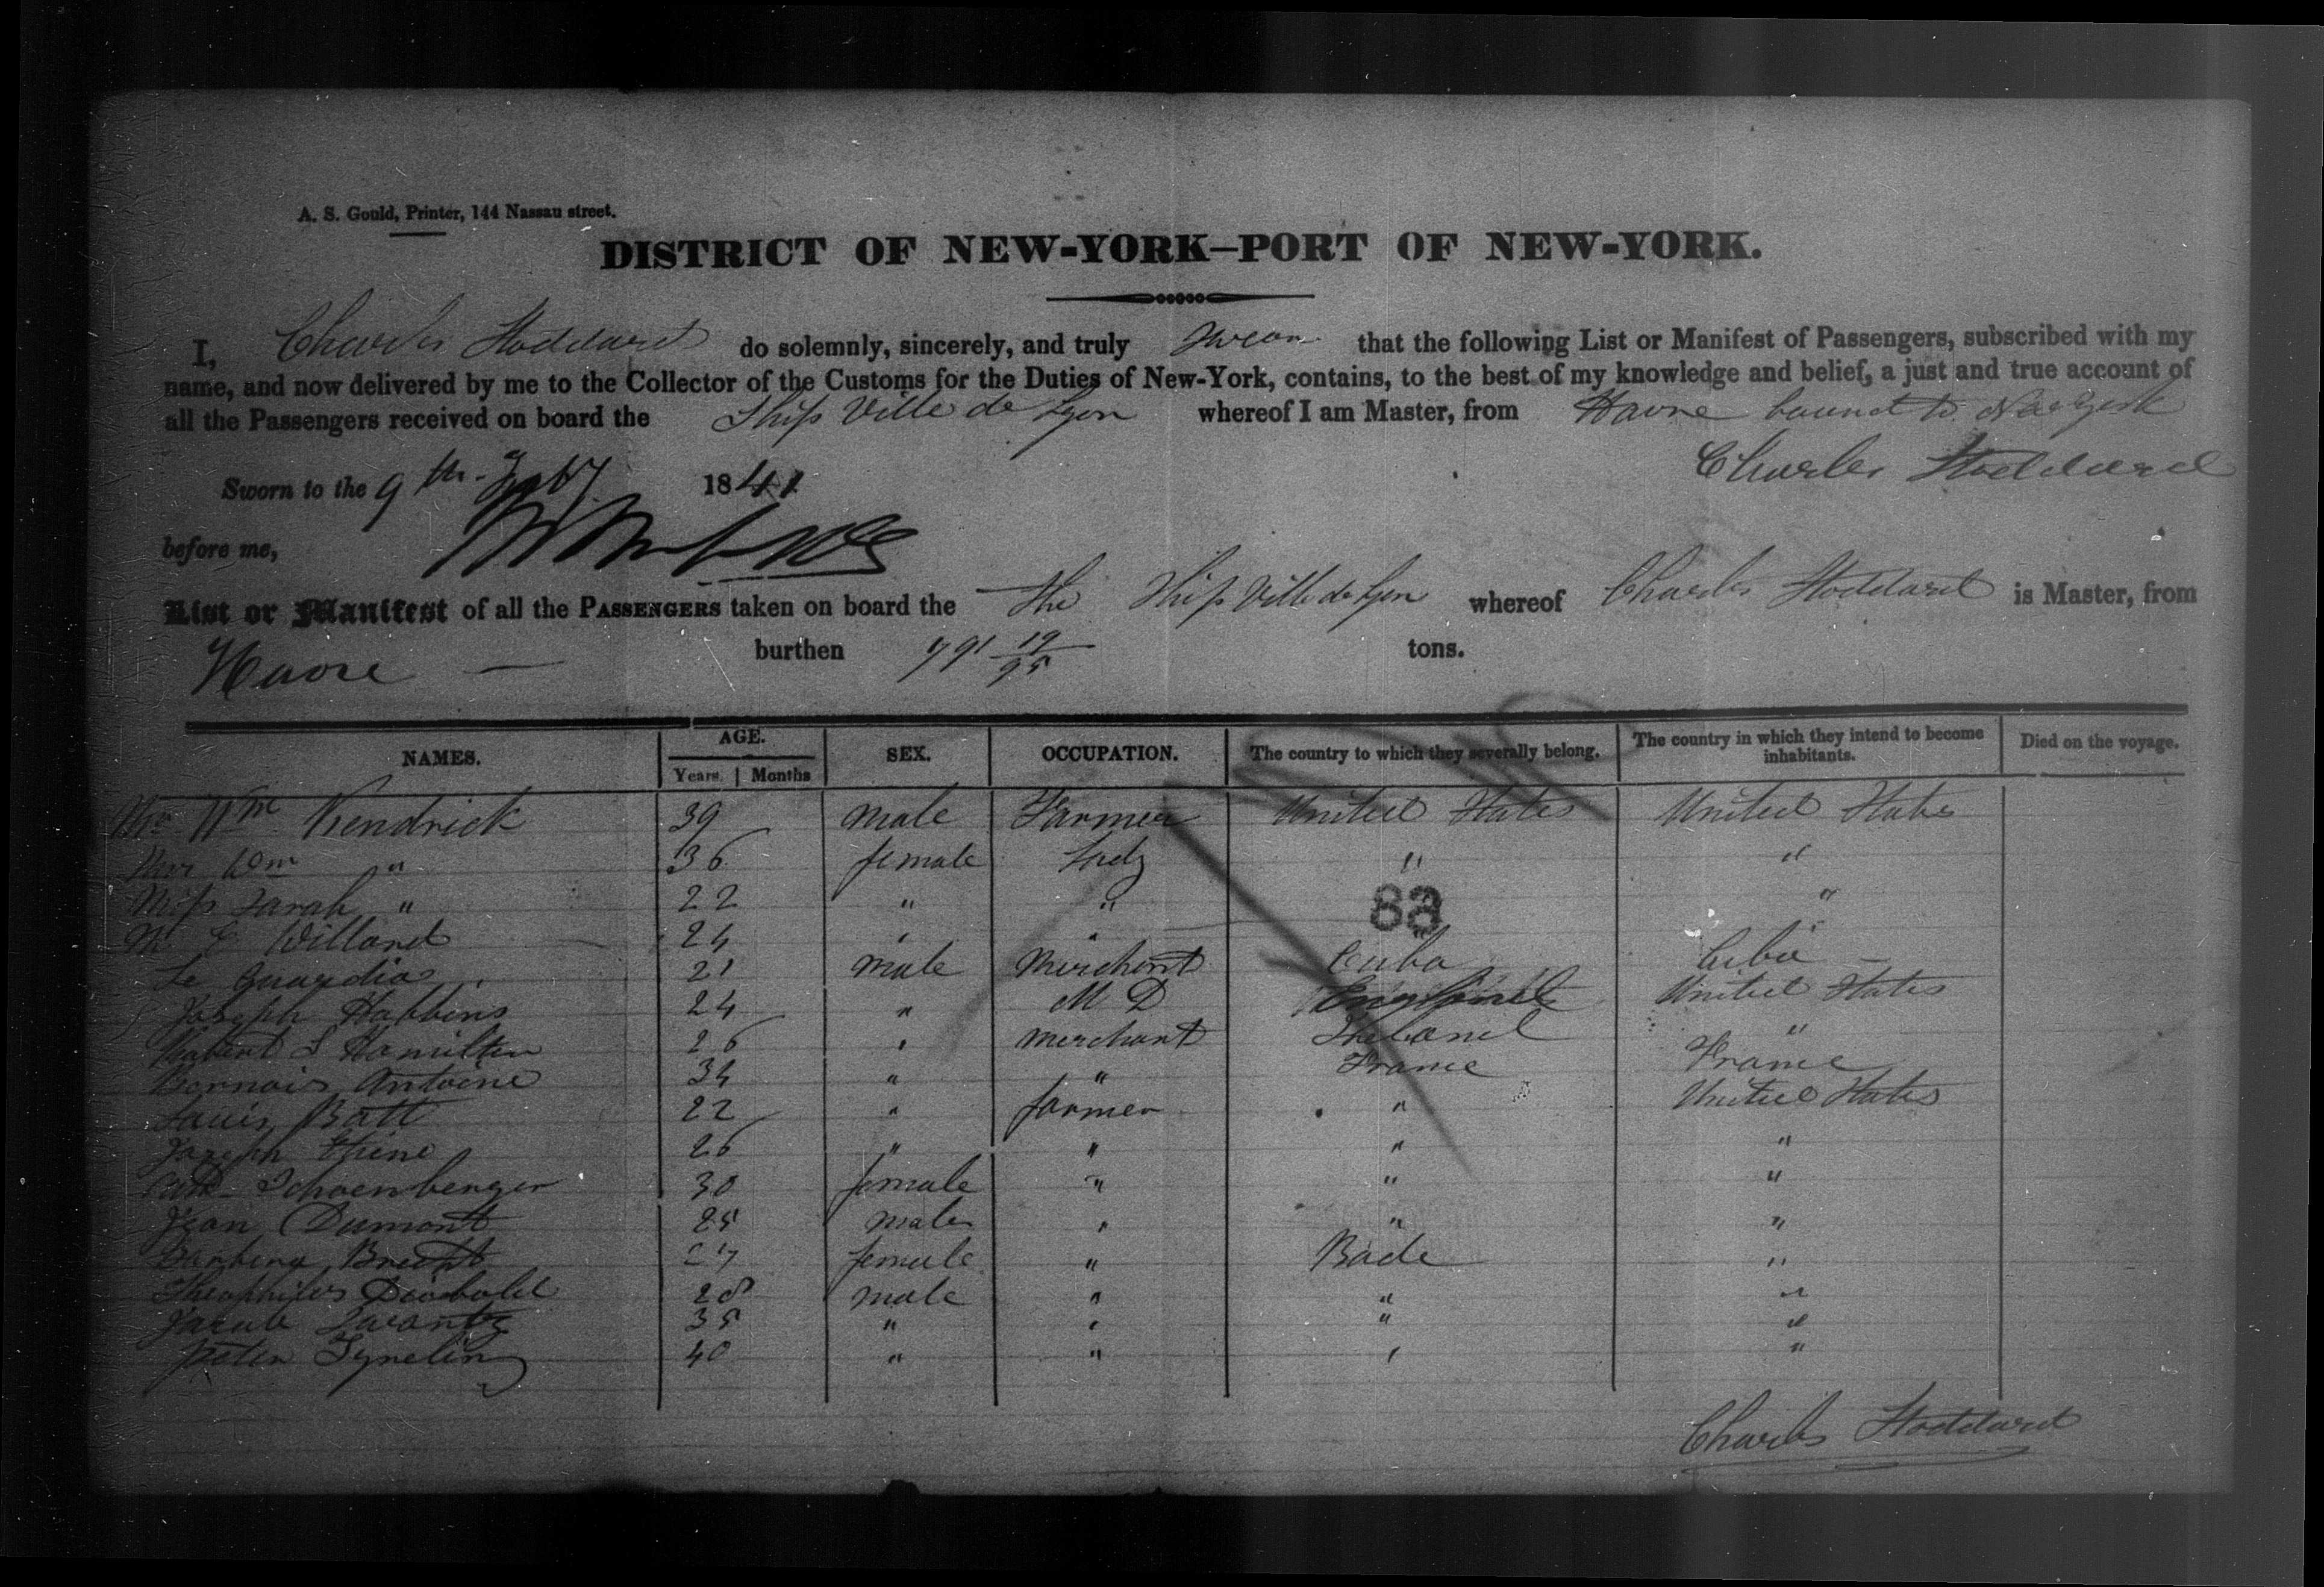 A. S. Gould, Printer, 144 Nassau street.
DISTRICT OF NEW-YORK—PORT OF NEW-YORK.
I, Charles Stoddard do solemnly, sincerely, and truly Swear that the following List or Manifest of Passengers, subscribed with my
name, and now delivered by me to the Collector of the Customs for the Duties of New-York, contains, to the best of my knowledge and belief, a just and true account of
all the Passengers received on board the Ship Ville de Lyon whereof I am Master, from Havre bound to New York
Charles Stoddard
Sworn to the 9th 1841
before me,
List or Manifest of all the PASSENGERS taken on board the The Ship Ville de Lyon whereof Charles Stoddard is Master, from
Havre — burthen 791 19/95 tons.
NAMES. AGE. Years. Months SEX. OCCUPATION. The country to which they severally belong. The country in which they intend to become inhabitants. Died on the voyage.
Mr Wm Kendrick 39 male Farmer United States United States
Mrs Wm " 36 female Lady " "
Miss Sarah " 22 " " "
88
Willard 24 " "
Le Guardia 21 male Merchant Cuba Cuba
Joseph 24 " M D England United States
Robert S Hamilton 26 " merchant Ireland "
Antoine 34 " " France France
Louis Batt 22 " farmer " United States
Joseph 26 " " " "
Schoenberger 30 female " " "
Jean Dumont 25 male " " "
Barbera Brecht 27 female " Bade "
Theophiles Diebold 28 male " " "
Jacob 35 " " " "
40 " " " "
Charles Stoddard